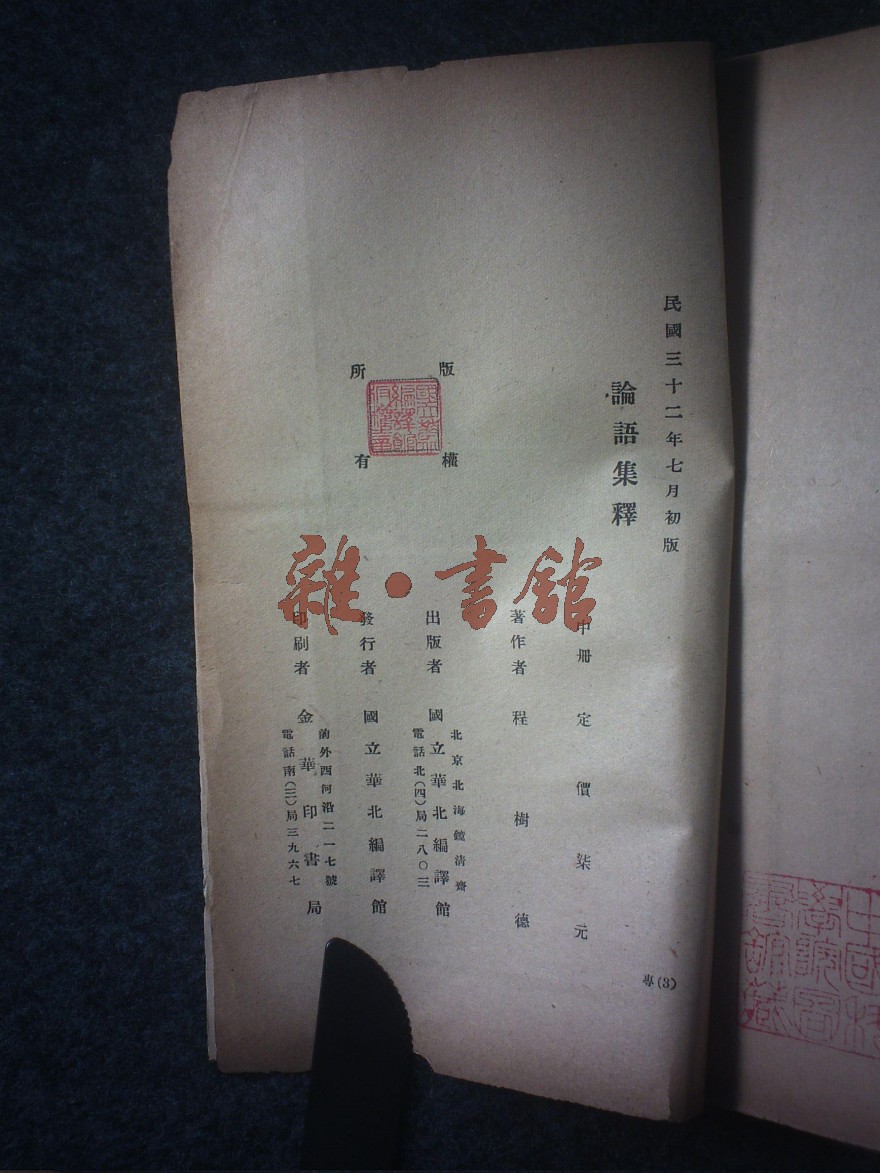 民國三十二年七月初版
論語集釋
中册 定價柒元
著作者 程樹德
出版者 國立華北編譯館
北京北海鏡清齋
電話北(四)局二八〇三
發行者 國立華北編譯館
印刷者 金華印書局
前外西河沿二一七號
電話南(三)局三九六七
版權所有
專(3)
雜·書館